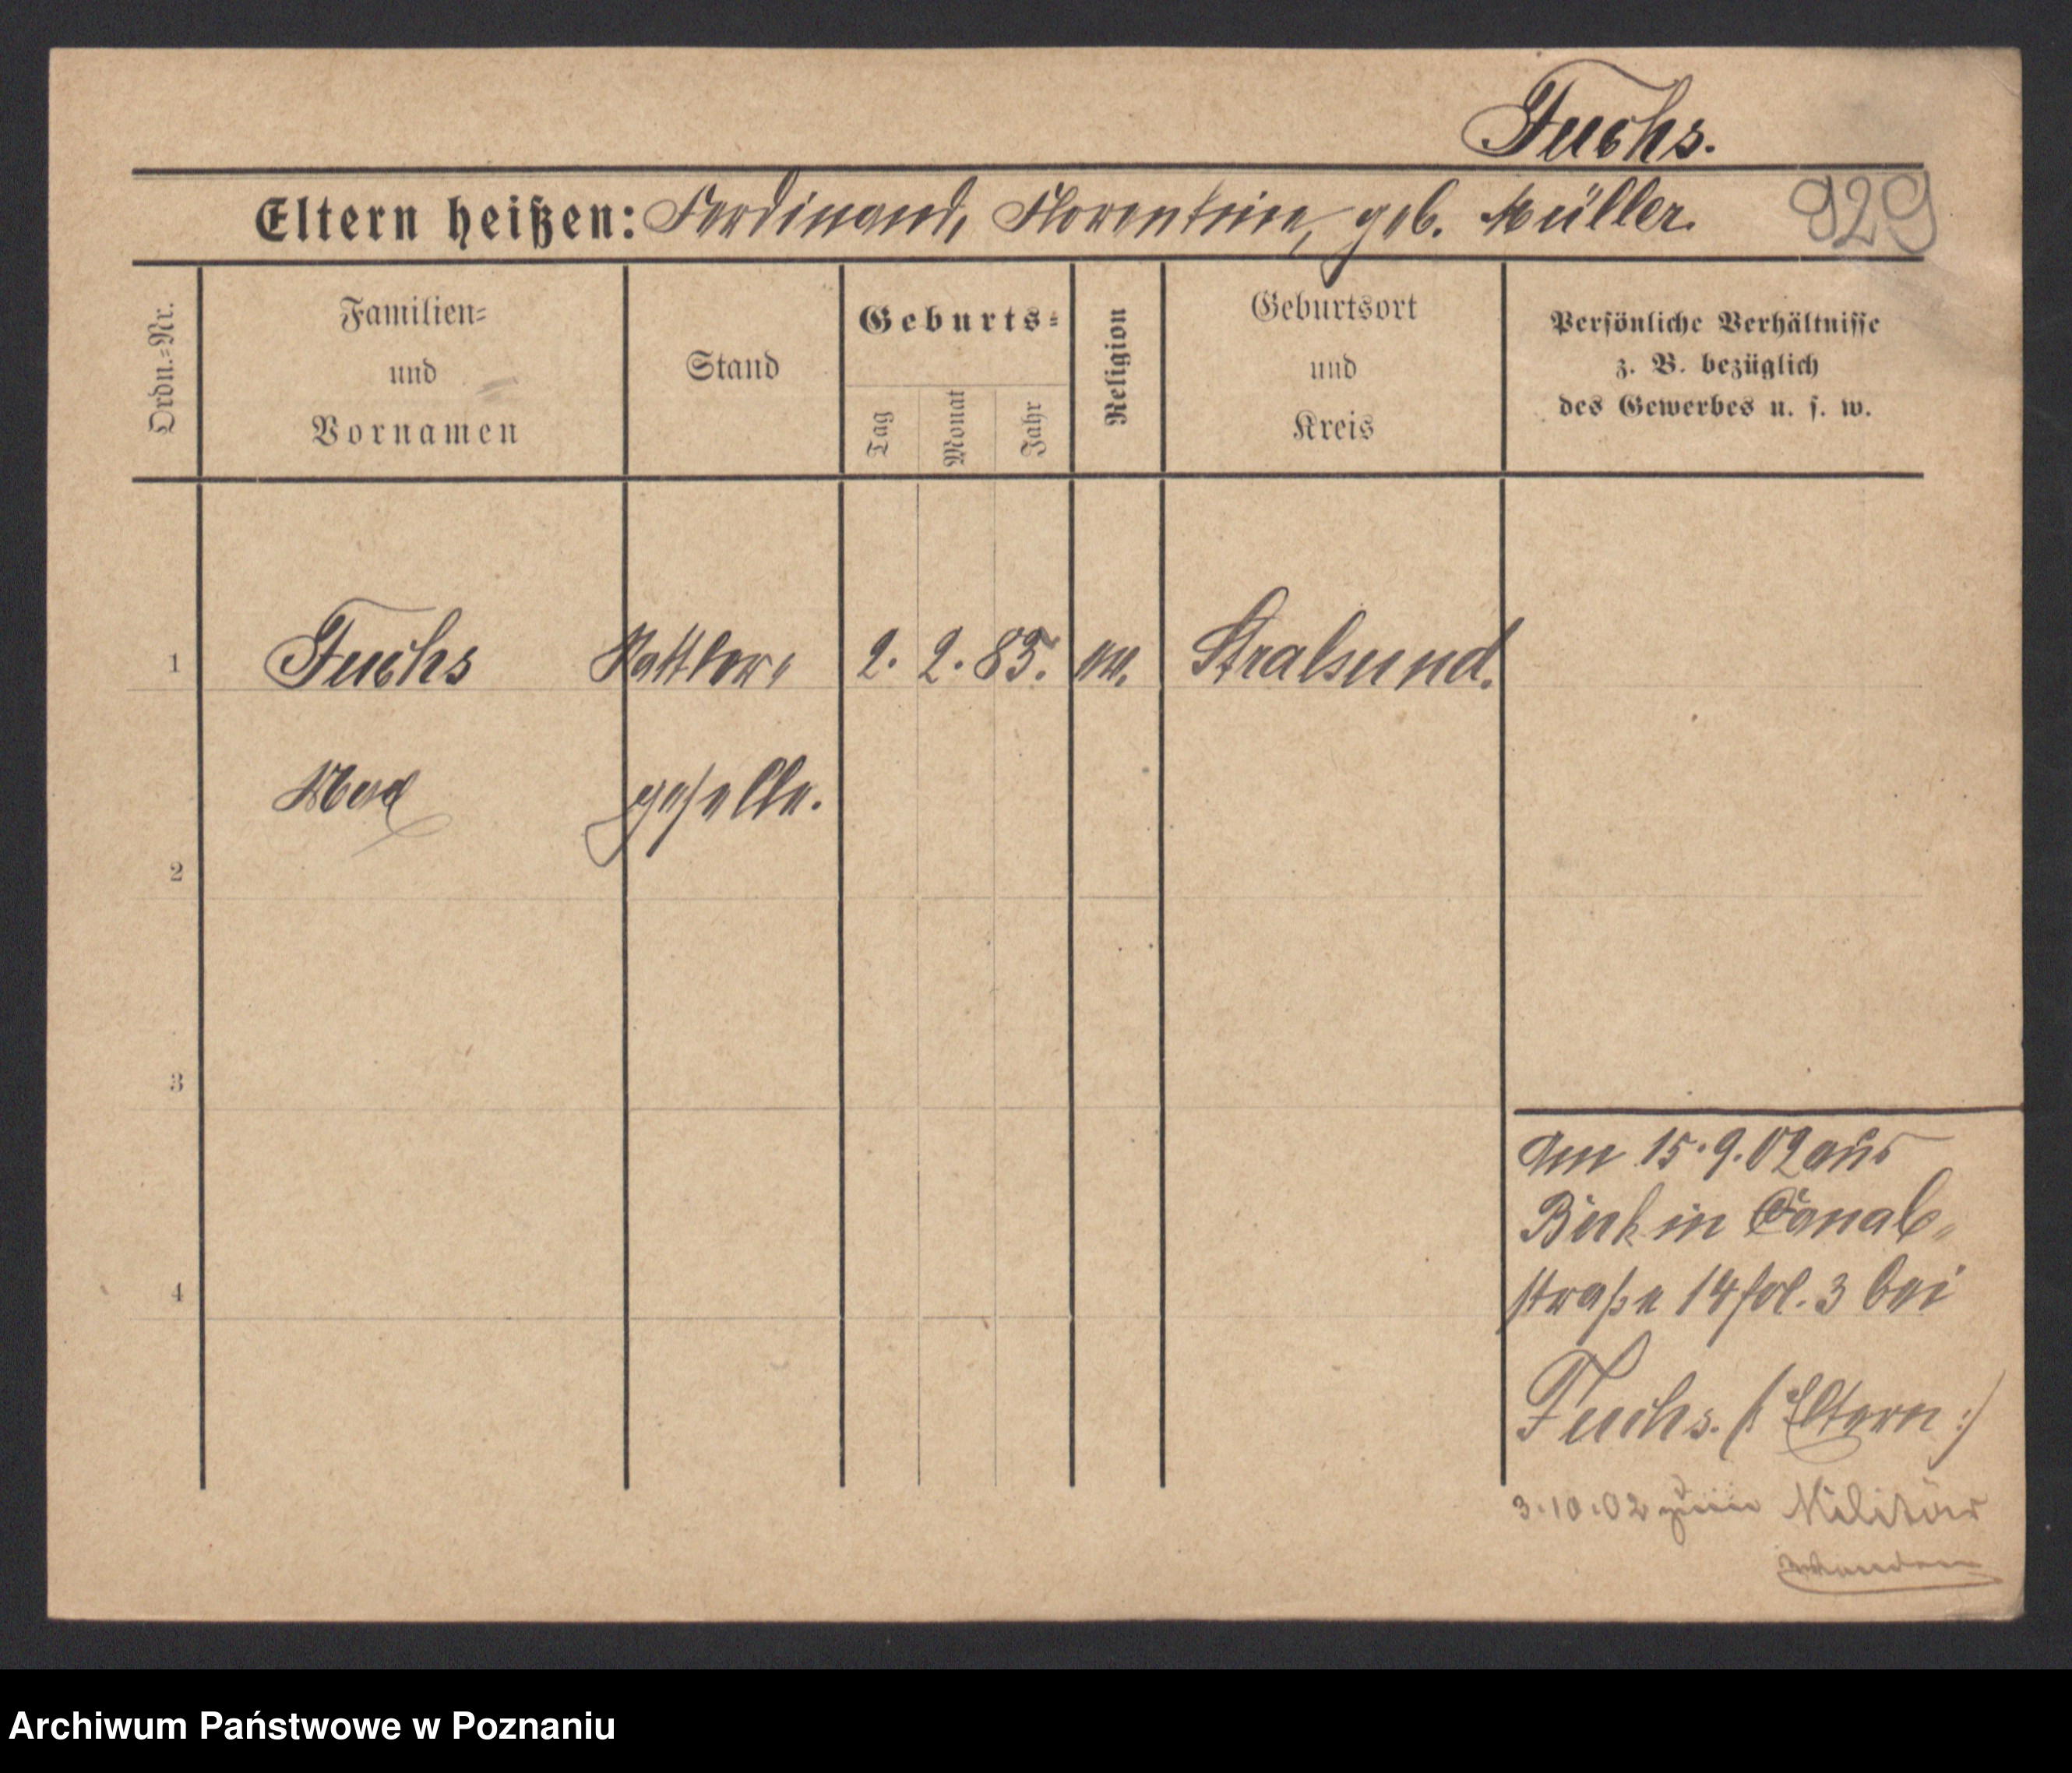 Fuchs.
Eltern heißen: Ferdinand, Florentine, geb. Müller.
929
Ordn.=Nr.
Familien=
und
Vornamen
Stand
Geburts=
Tag
Monat
Jahr
Religion
Geburtsort
und
Kreis
Persönliche Verhältnisse
z. B. bezüglich
des Gewerbes u. s. w.
1 Fuchs Sattler= 2. 2. 83. ev. Stralsund.
Max geselle.
2
3
4
Am 15.9.02 aus
Buk in Canal=
straße 14 bei
Fuchs. (: Eltern :)
3.10.02 zum Militär
Archiwum Państwowe w Poznaniu